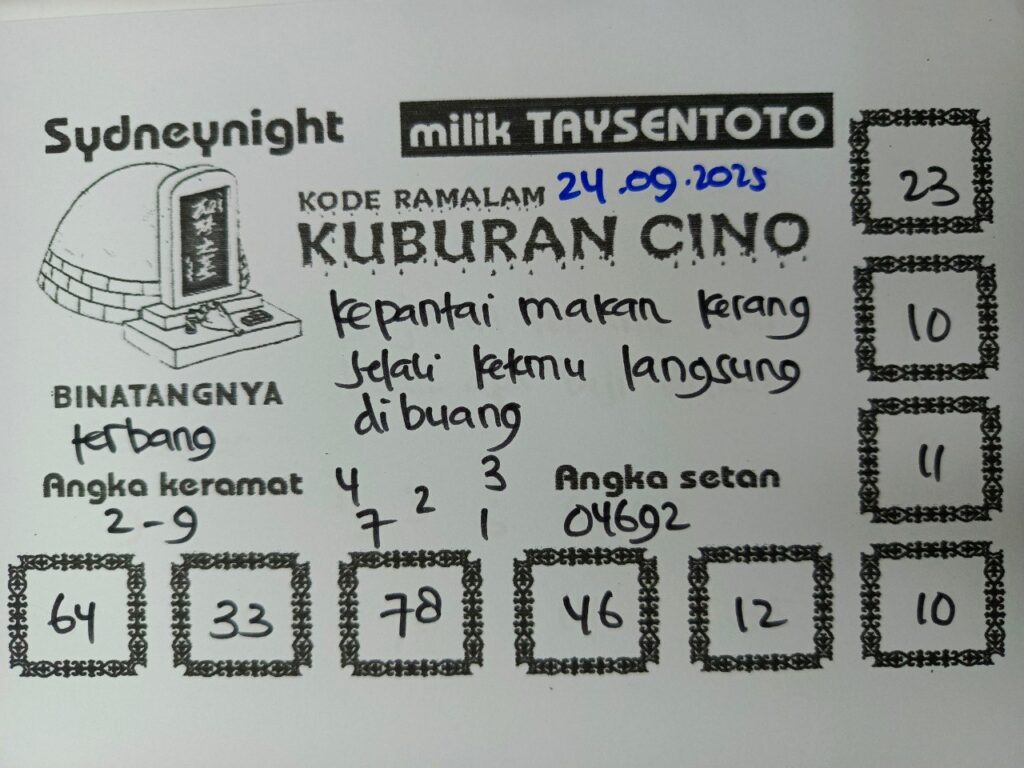 Sydneynight
milik TAYSENTOTO
KODE RAMALAM 24.09.2025
KUBURAN CINO
kepantai makan kerang
ketemu langsung
dibuang
BINATANGNYA
terbang
Angka keramat
2-9
4 3
2
7 1
Angka setan
04692
23
10
11
64 33 78 46 12 10